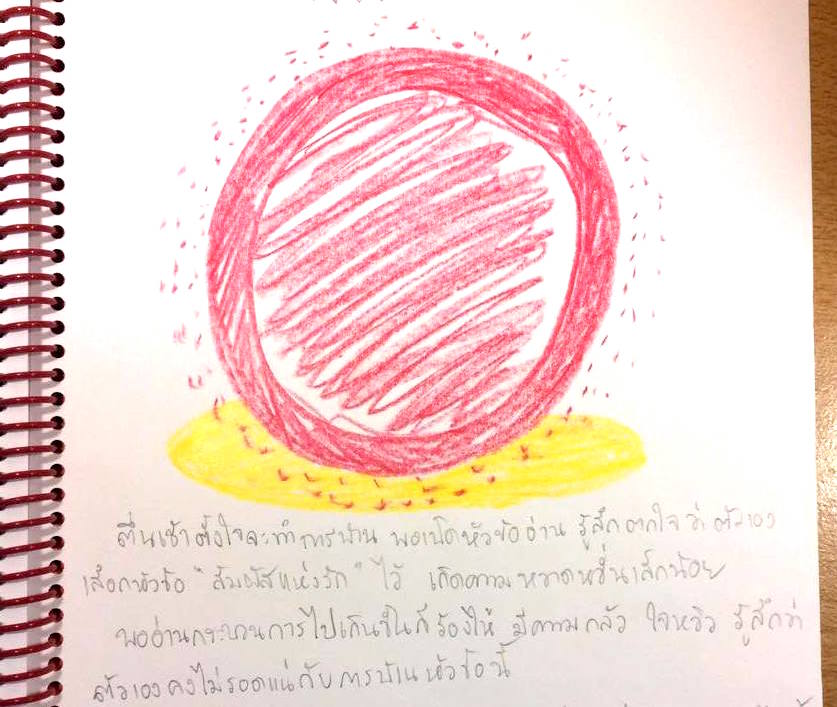 ตื่นเช้าตั้งใจจะทำการบ้าน พอเปิดหัวข้ออ่าน รู้สึกตกใจว่าตัวเอง
เลือกหัวข้อ "สัมผัสแห่งรัก" ไว้ เกิดความหวาดหวั่นเล็กน้อย
พออ่านกระบวนการไปเกินขึ้นก็ร้องไห้ มีความกลัว ใจหวิว รู้สึกว่า
ตัวเองคงไม่รอดแน่กับการบ้านหัวข้อนี้